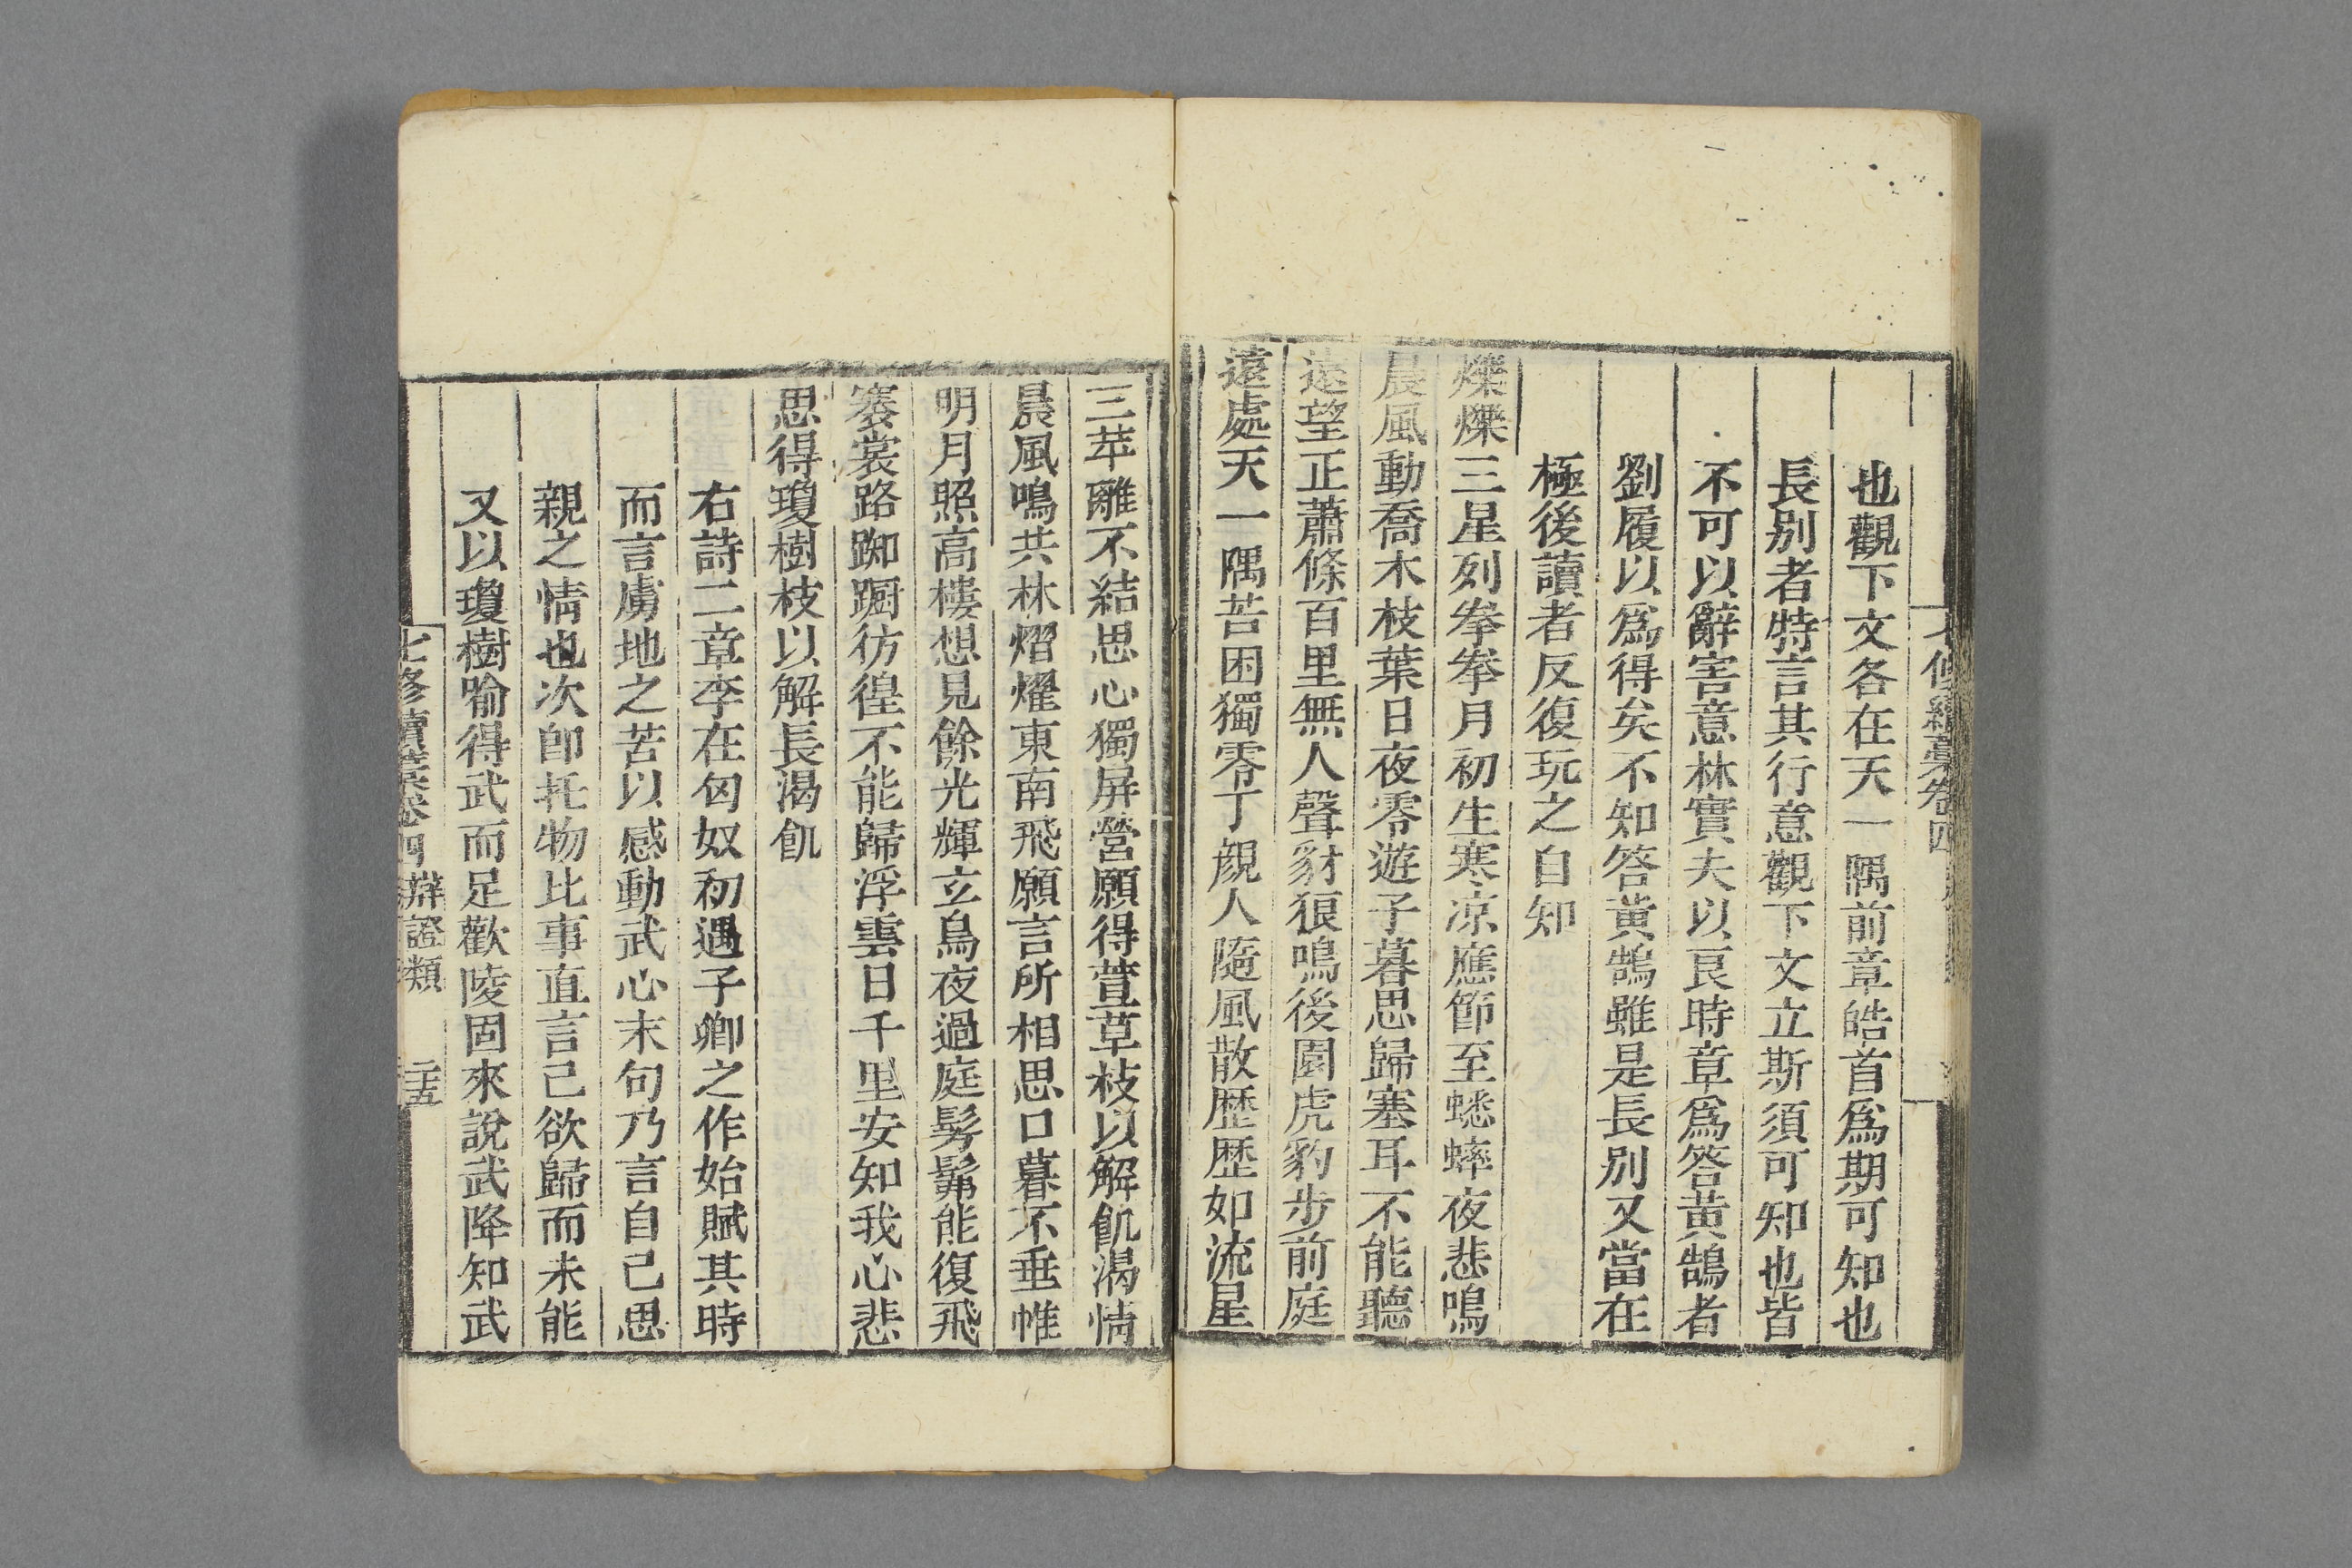 七修續藁卷四
也觀下文各在天一隅前章皓首爲期可知也
長别者特言其行意觀下文立斯須可知也皆
不可以辭害意林實夫以良時章爲答黃鵠者
劉履以爲得矣不知答黃鵠雖是長別又當在
極後讀者反復玩之自知
爍爍三星列拳拳月初生寒凉應節至蟋蟀夜悲鳴
晨風動喬木枝葉日夜零遊子暮思歸塞耳不能聽
遠望正蕭條百里無人聲豺狼鳴後園虎豹步前庭
遠處天一隅苦困獨零丁親人隨風散歴歴如流星
三苹離不結思心獨屏營願得萱草枝以解飢渴情
晨風鳴共林熠燿東南飛願言所相思口暮不垂帷
明月照高樓想見餘光輝玄鳥夜過庭髣髴能復飛
褰裳路踟蹰彷徨不能歸浮雲日千里安知我心悲
思得瓊樹枝以解長渴飢
右詩二章李在匈奴初遇子卿之作始賦其時
而言虜地之苦以感動武心末句乃言自己思
親之情也次卽托物比事直言己欲歸而未能
又以瓊樹喻得武而足歡陵固來說武降知武
七修續藁卷四 辯證類 二十五